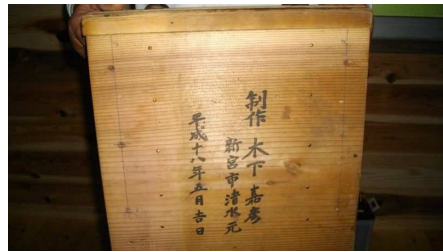 制作 木下嘉彦
新宮市清水元
平成十八年五月吉日